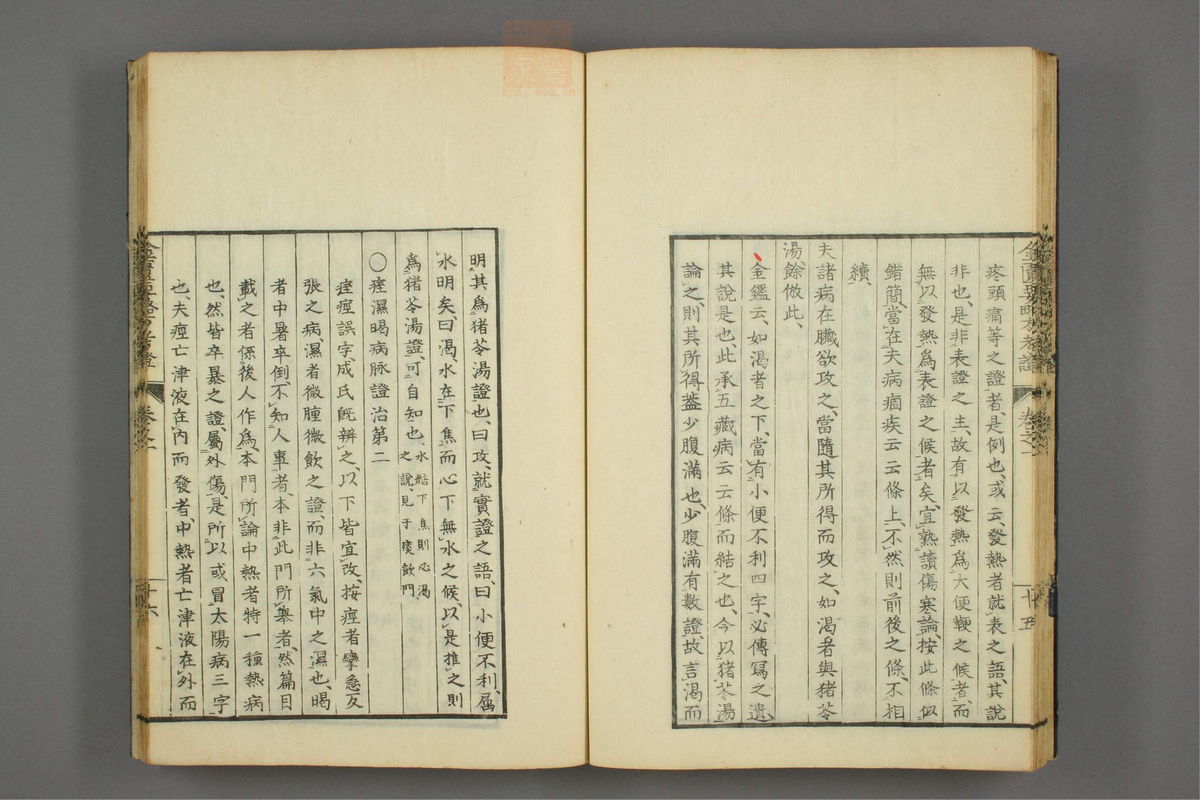 疼頭痛等之證者、是例也、或云、發熱者就表之語、其說
非也、是非表證之主、故有以發熱爲大便鞕之候者、而
無以發熱爲表證之候者矣、宜熟讀傷寒論、按此條似
錯簡、當在夫病痼疾云云條上、不然則前後之條、不相
續、
夫諸病在臟欲攻之、當隨其所得而攻之、如渴者與猪苓
湯、餘倣此、
金鑑云、如渴者之下、當有小便不利四字、必傳寫之遺、
其說是也、此承五藏病云云條而結之也、今以猪苓湯
論之、則其所得蓋少腹滿也、少腹滿有數證、故言渴而
金匱要略方考證
卷之一
十五
明其爲猪苓湯證也、曰攻、就實證之語、曰小便不利、屬
水明矣、曰渴、水在下焦而心下無水之候、以是推之則
爲猪苓湯證、可自知也、水結下焦則必渴之說、見于痰飲門
○痙濕暍病脉證治第二
痓痙誤字、成氏旣辨之、以下皆宜改、按痙者攣急反
張之病、濕者微腫微飲之證、而非六氣中之濕也、暍
者中暑卒倒、不知人事者、本非此門所擧者、然篇目
載之者、係後人作爲、本門所論中熱者特一種熱病
也、然皆卒暴之證、屬外傷、是所以或冒太陽病三字
也、夫痙亡津液在內而發者、中熱者亡津液在外而
金匱要略方考證
卷之一
十六